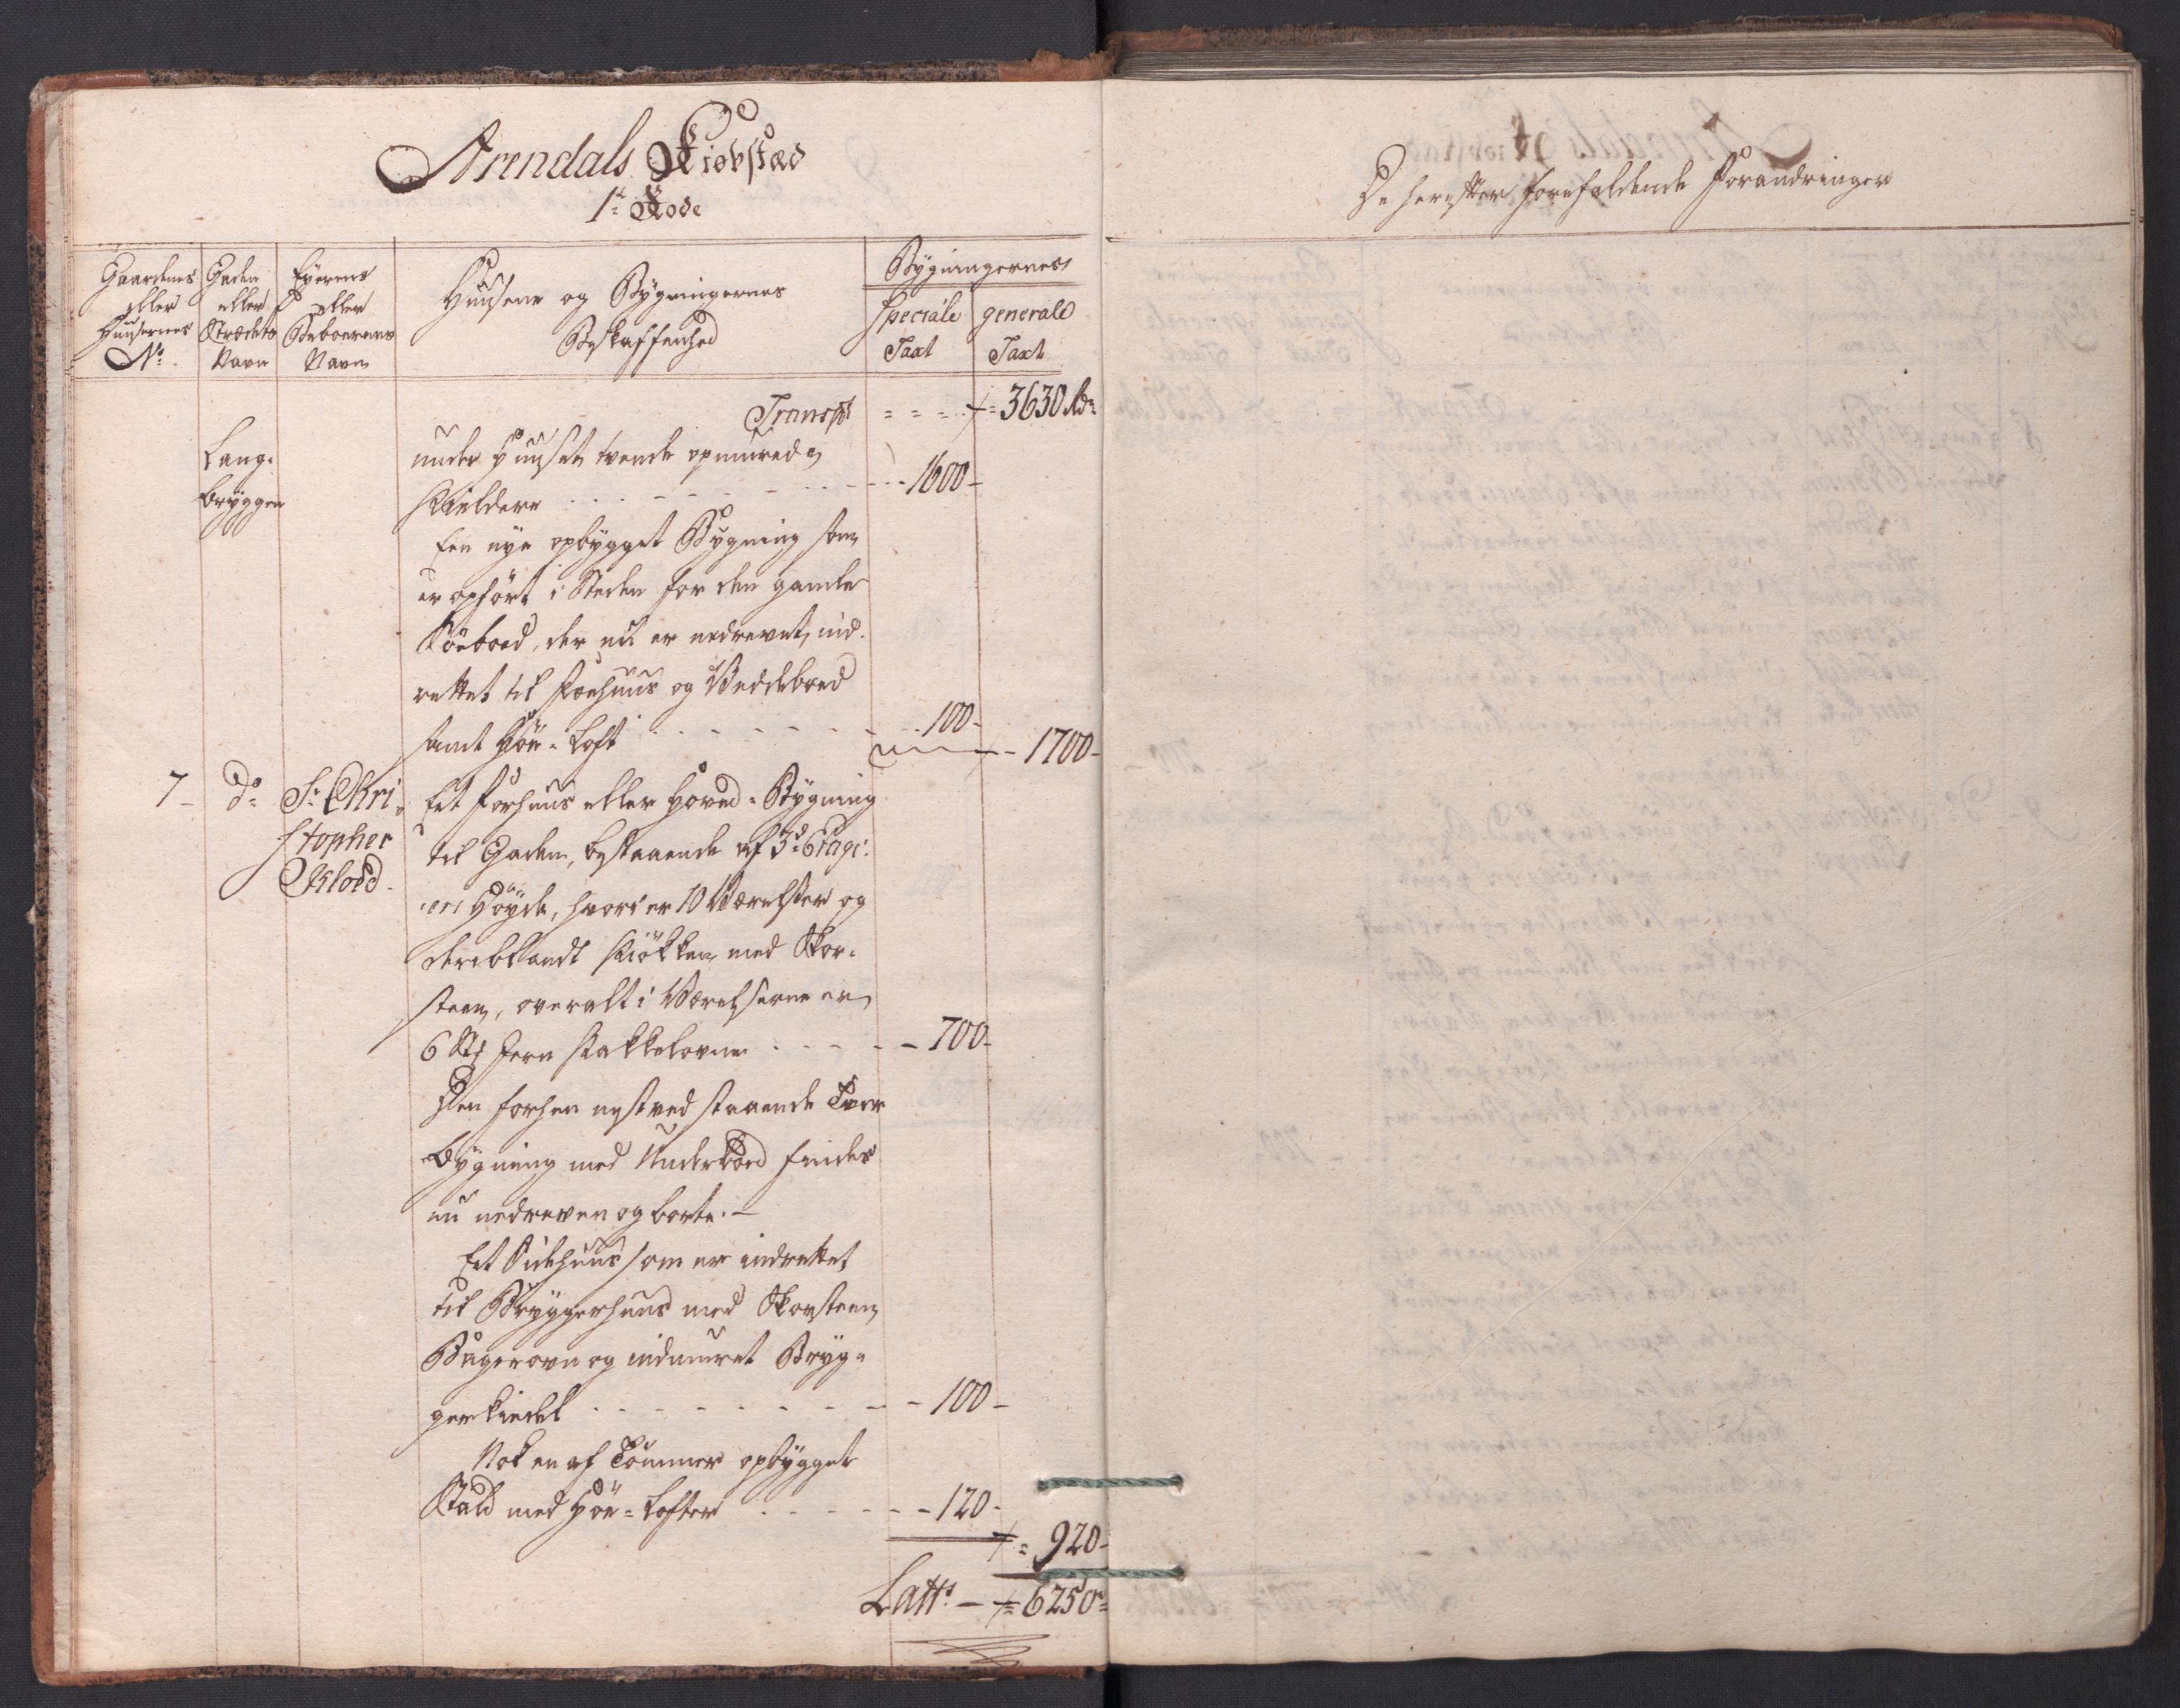 Arendals Kiøbstæd
1te Rode
Gaardenes eller Huusernes No.
Gaden eller Strædets Navn
Eyerens eller Beboerens Navn
Huusene og Bygningernes Beskaffenhed
Bygningernes
Speciale Taxt
generale Taxt
Transpt = = = 3630 Rd
Lang-
bryggen
under Huuset tvende opmurede
Kieldere - - - 1600 -
Een nye opbygget Bygning som
er opført i Steden for den gamle
Søeboed, der nu er nedrevet, ind-
rettet til Foehuus og Vedeboed
samt Høe-Loft - - - 100 -
- 1700 -
7 - Do Sr. Chri-
stopher
Kloed -
Eet Forhuus eller Hoved-Bygning
til Gaden, bestaaende af 3de Etagi-
ers Høyde, hvori er 10 Værelser og
deriblandt Kiøkken med Skor-
steen, overalt i Værelserne er
6 St: Jern Kakkelovne - - - 700 -
Den forhen næstved staaende Tver
bygning med Underboed findes
nu nedreven og borte. -
Eet Sidehuus som er indrettet
til Bryggerhuus med Skorsteen,
Bagerovn og indmuret Bryg-
gerkiedel - - - 100 -
Nok en af Tømmer opbygget
Stald med Høe-Lofter - - - 120 -
= 920 -
Latts - = 6250 =
De herefter forefaldende Forandringer